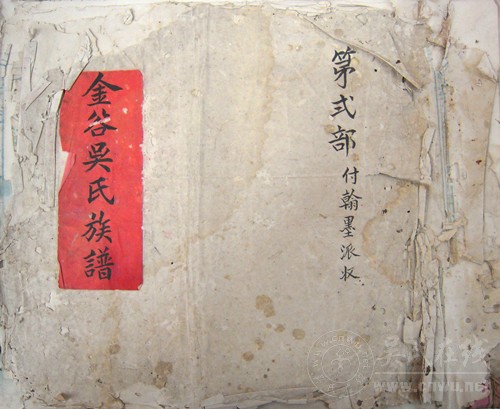 第弍部付翰墨派收
金谷吳氏族譜
吴氏在线
www.cnwu.net